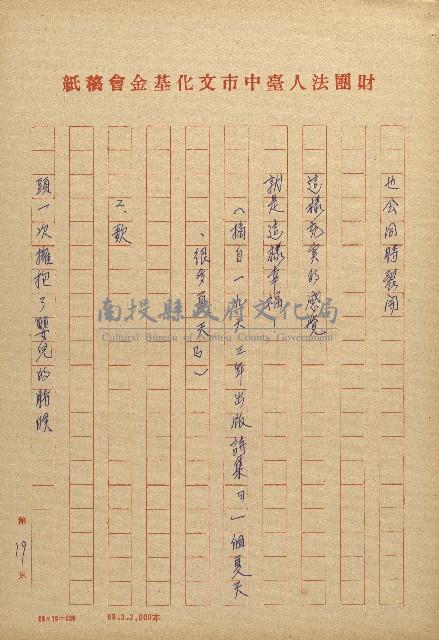 財團法人臺中市文化基金會稿紙
也会同時裂開
這樣充實的感覺
就是這樣幸福！
（摘自一九六三年出版詩集曰一個夏天
、很多夏天曰）
二、歌
頭一次擁抱了嬰兒的時候
南投縣政府文化局
Cultural Bureau of Nantou County Government
第19頁
68.3.2,000本